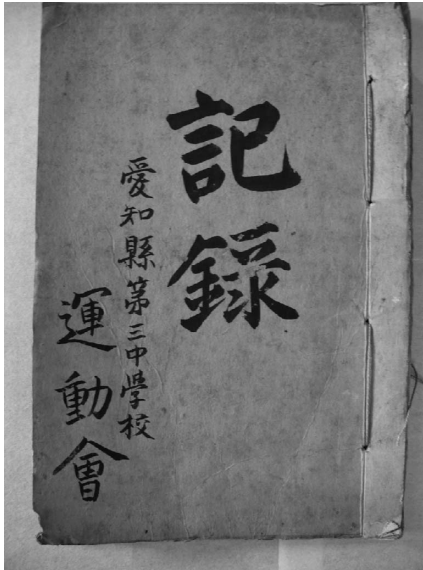 記録
愛知縣第三中學校
運動會